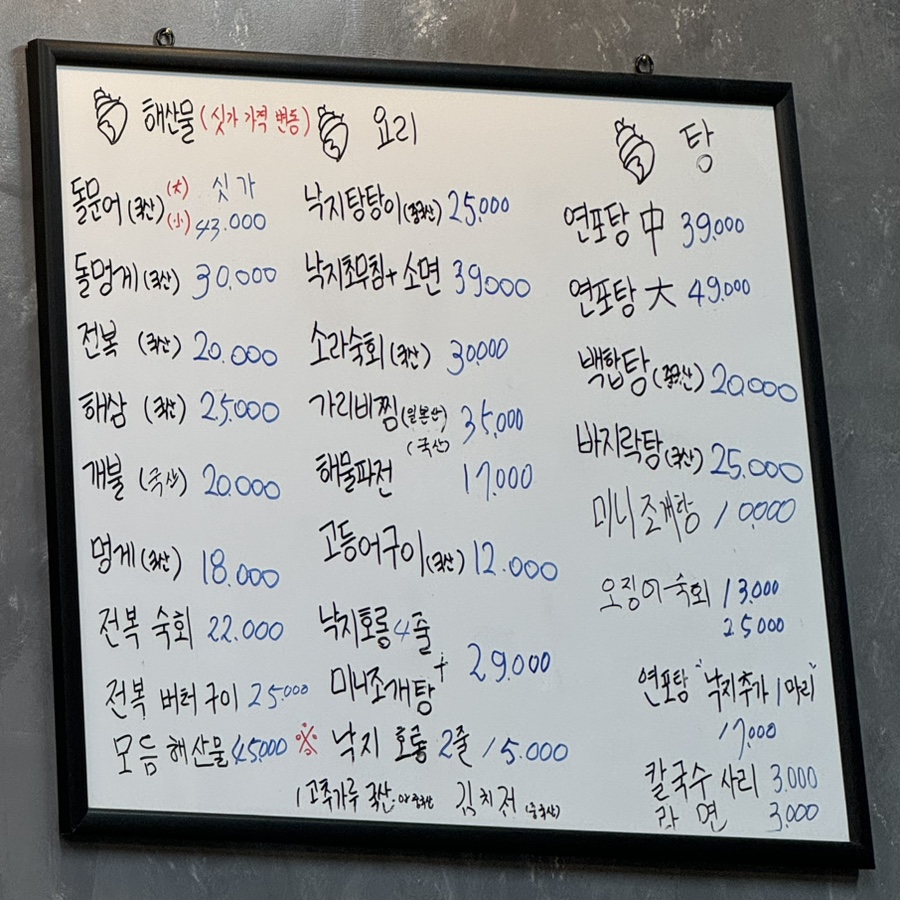 해산물 (싯가 가격 변동)
돌문어 (국산) (大) 싯가
(小) 43.000
돌멍게 (국산) 30.000
전복 (국산) 20.000
해삼 (국산) 25.000
개불 (국산) 20.000
멍게 (국산) 18.000
전복 숙회 22.000
전복 버터구이 25.000
모듬 해산물 45.000 ※
요리
낙지탕탕이 (중국산) 25.000
낙지초무침 + 소면 39000
소라숙회 (국산) 30000
가리비찜 (일본산) 35,000
(국산)
해물파전 17.000
고등어구이 (국산) 12.000
낙지호롱 4줄
+
미니조개탕 29.000
낙지 호롱 2줄 15.000
고추가루 국산 김치전 (중국산)
탕
연포탕 中 39.000
연포탕 大 49.000
백합탕 (중국산) 20.000
바지락탕 (국산) 25.000
미니 조개탕 10.000
오징어숙회 13.000
25000
연포탕 "낙지추가 1마리"
17.000
칼국수 사리 3.000
라면 3.000